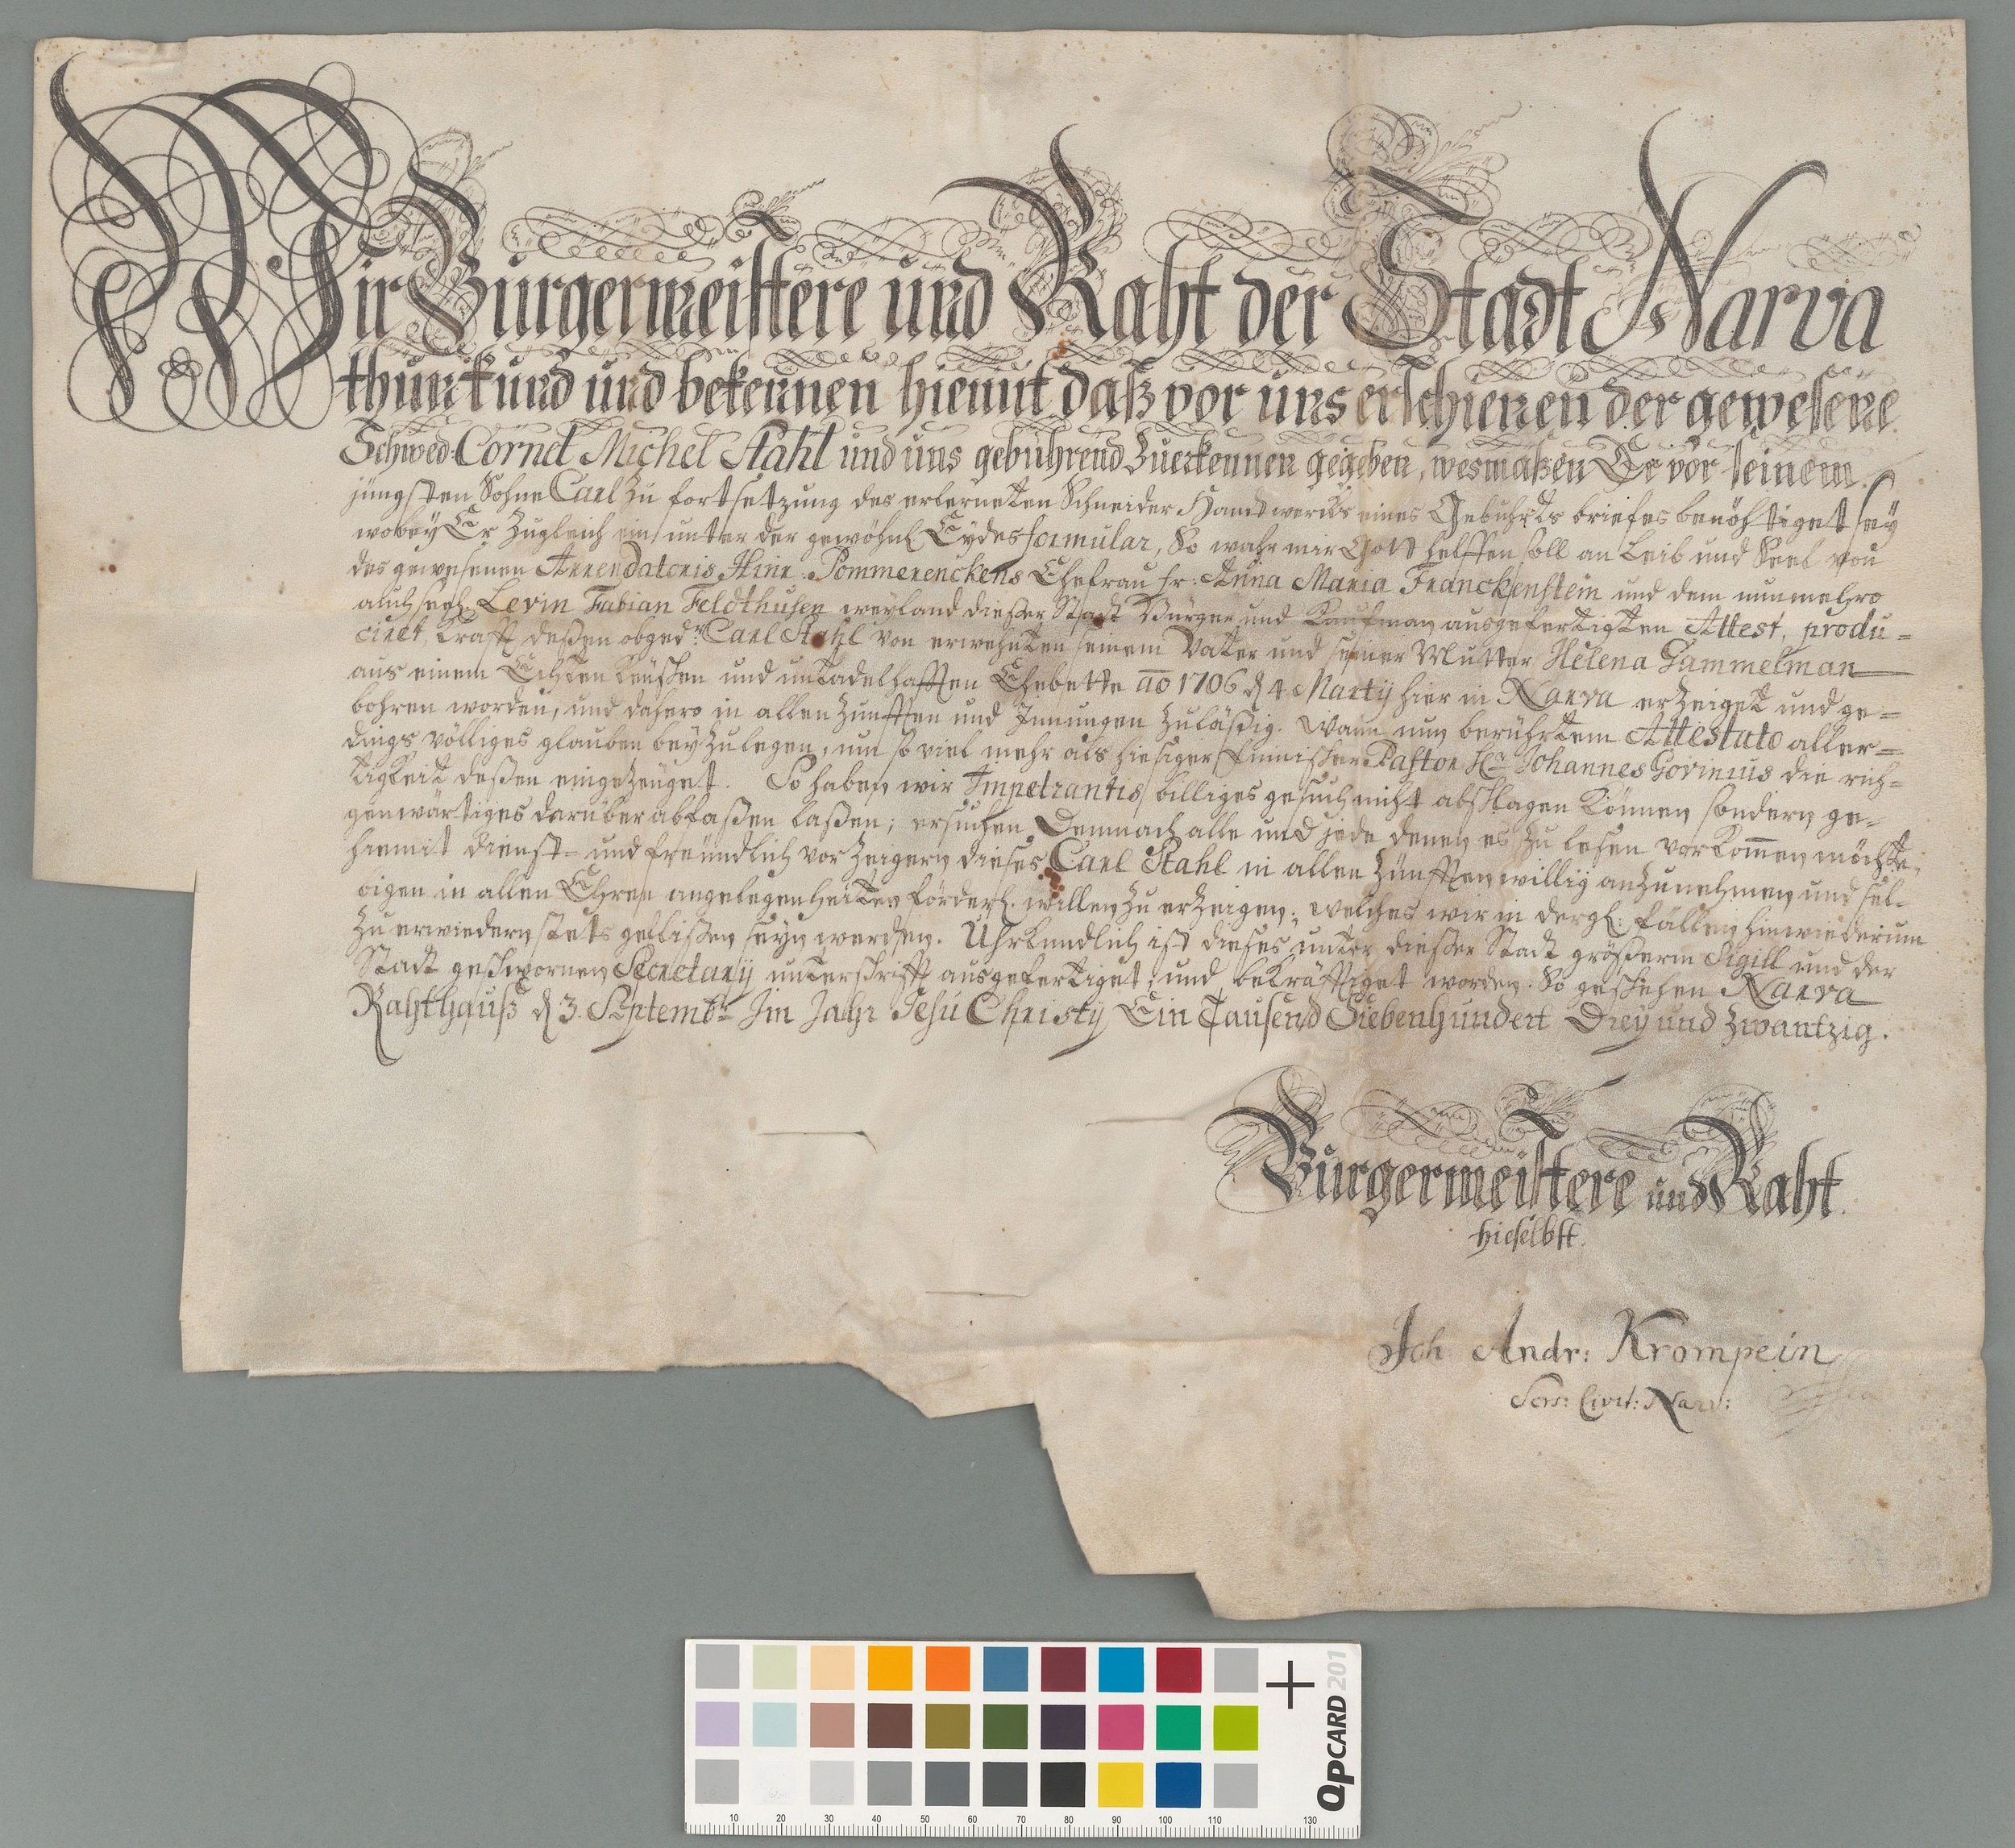 Wir Bürgermeistere und Raht der Stadt Narva
thun kund und bekennen hiemit daß vor uns erschienen der gewesene
Schwed: Cornet Michel Stahl und uns gebührend zuerkennen gegeben, wesmaßen Er vor seinem
jüngsten Sohne Carl zu fortsetzung des erlerneten Schneider Handwercks eines Gebuhrts briefes benöhtiget sey
wobey Er zugleich ein unter der gewöhnl Eydesformular, So wahr mir Gott helffen soll an Leib und Seel von
des gewesenen Arrendatoris Hinr. Pommerenckens Ehefrau Fr: Anna Maria Franckenstein und dem nunmehro
auch seel. Levin Fabian Feldthusen weyland dießer Stadt Bürger und Kaufman ausgefertigten Attest, produ=
ciret, Krafft deßen obgedr Carl Stahl von erwehnten seinem Vater und seiner Mutter Helena Gammelman
aus einem Echten Keuschen und untadelhafften Ehebette ao 1706 d 4 Martij hier in Narva erzeiget und ge=
bohren worden, und dahero in allen Zunfften und Innungen zuläßig. Wann nun berührtem Attestato aller=
dings völliges glauben beyzulegen, um so viel mehr als hiesiger Finnischer Pastor Hr. Johannes Govinius die rich=
tigkeit deßen eingezeuget. So haben wir Impetrantis billiges gesuch nicht abschlagen können sondern ge=
genwärtiges darüber abfaßen laßen; ersuchen Demnach alle und jede denen es zu lesen vorkommen möchte,
hiemit dienst= und freundlich vorzeigern dieses Carl Stahl in allen Zünfften willig anzunehmen und sel=
bigen in allen Ehren angelegenheiten förderl. willen zu erzeigen; welches wir in dergl: fällen hinwiederum
zu erwiedern stets geflißen seyn werden. Uhrkundlich ist dieses unter dießer Stadt größerm Sigill und der
Stadt geschwornen Secretarij unterschrifft ausgefertiget, und bekräfftiget worden. So geschehen Narva
Rahthauß d 3. Septembr Im Jahr Jesu Christy Ein Tausend Siebenhundert Drey und zwantzig.
Bürgermeistere und Raht
hieselbst.
Joh Andr: Krompein
Secr: Civit: Narv:
QPCARD 201
10 20 30 40 50 60 70 80 90 100 110 130